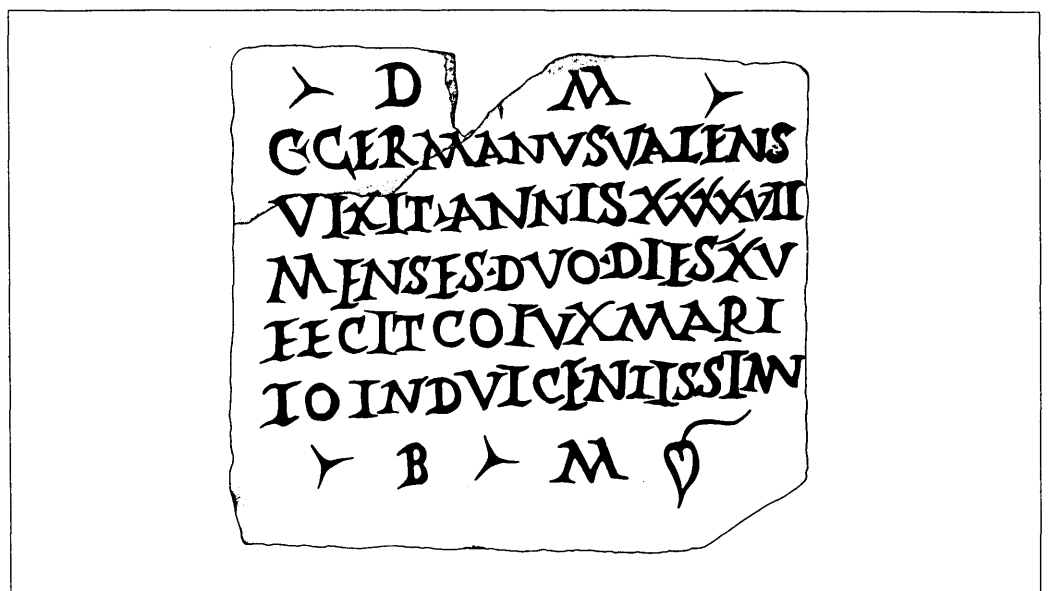 D M
C·GERMANVSVALENS
VIXIT·ANNISXXXXVII
MENSES·DVO·DIESXV
FECITCOIVXMARI
IOINDVICENIISSIMV
B M